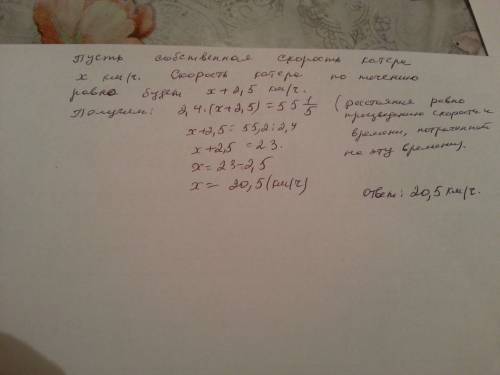 Пусть собственная скорость катера
x км/ч. Скорость катера по течению
равна будет x + 2,5 км/ч.
Получим: 2,4·(x+2,5) = 55 1/5 (расстояние равно
произведению скорости и
времени, потраченной
на эту времени).
x+2,5 = 55,2 : 2,4
x+2,5 = 23.
x = 23-2,5
x = 20,5 (км/ч)
Ответ: 20,5 км/ч.